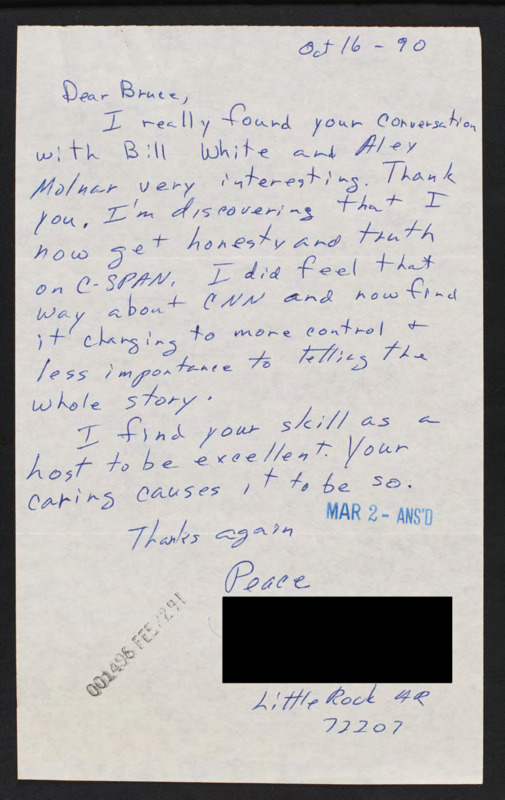 Oct 16 - 90
Dear Bruce,
I really found your conversation
with Bill White and Alex
Molnar very interesting. Thank
you. I'm discovering that I
now get honesty and truth
on C-SPAN. I did feel that
way about CNN and now find
it changing to more control +
less importance to telling the
whole story.
I find your skill as a
host to be excellent. Your
caring causes it to be so.
MAR 2 - ANS'D
Thanks again
Peace
001496 FEB
Little Rock AR
72207